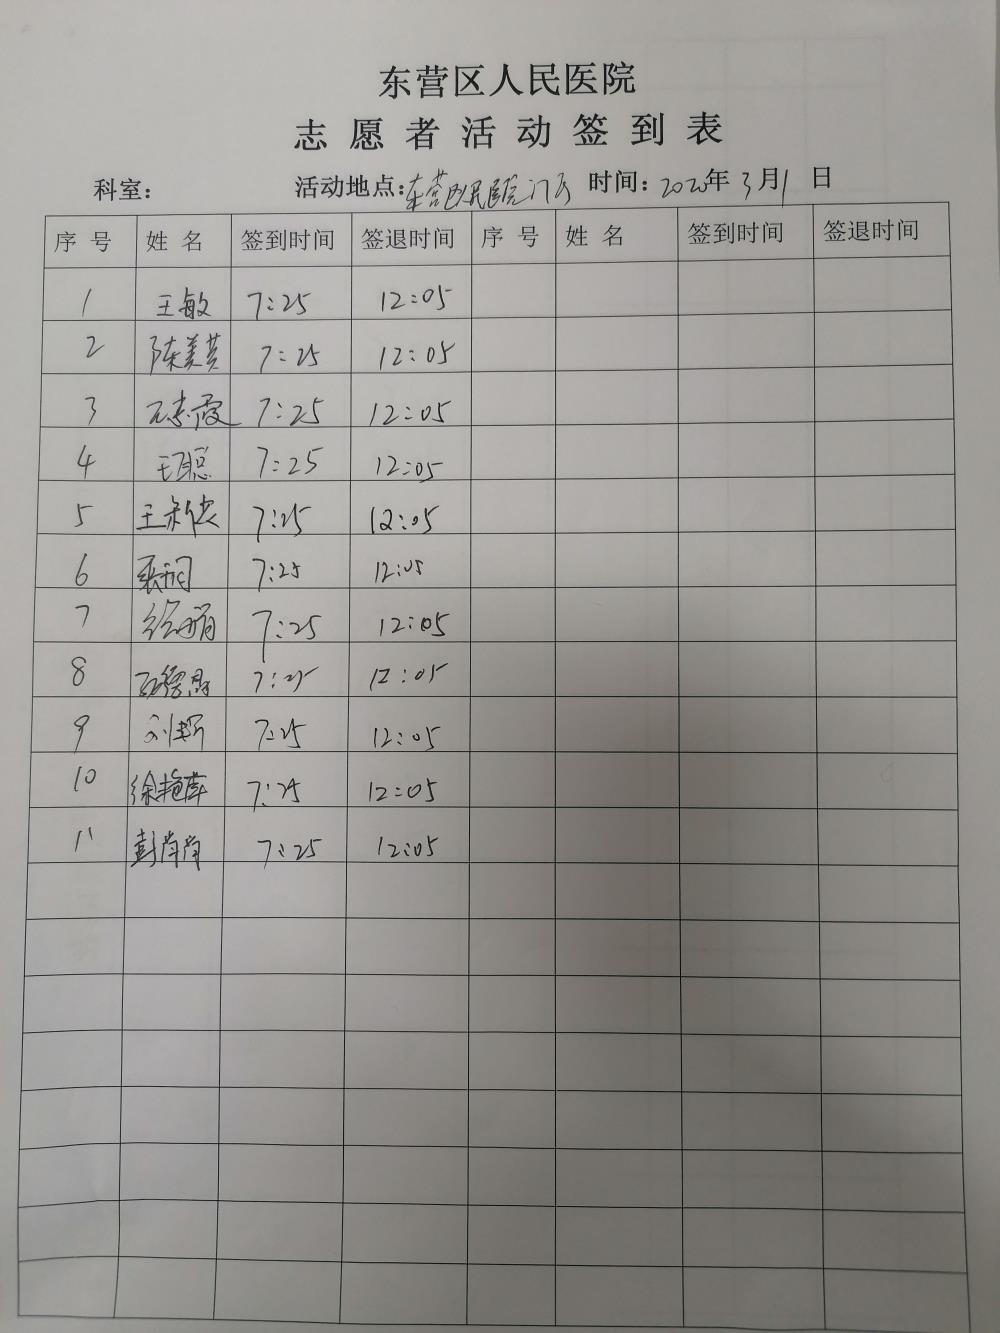 东营区人民医院
志愿者活动签到表
科室： 活动地点：东营区人民医院门诊 时间：2020年3月1日
序号 姓名 签到时间 签退时间 序号 姓名 签到时间 签退时间
1 王敏 7:25 12:05
2 陈美芸 7:25 12:05
3 7:25 12:05
4 王聪 7:25 12:05
5 王 7:25 12:05
6 张 7:25 12:05
7 徐 7:25 12:05
8 7:25 12:05
9 刘 7:25 12:05
10 徐艳萍 7:25 12:05
11 彭岗岗 7:25 12:05